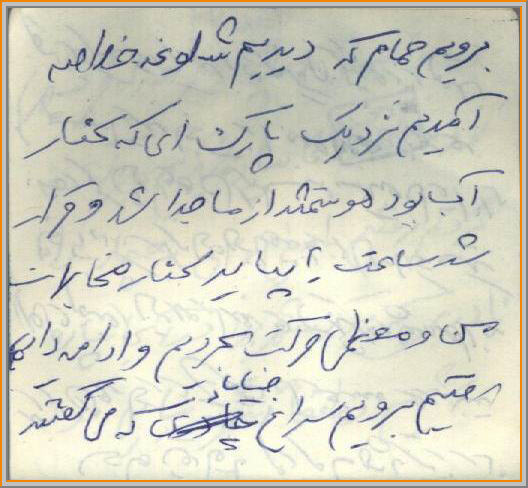 برویم حمام که دیدیم شلوغه خلاصه
آمدیم نزدیک پارک ای که کنار
آب بود هوشمند از ما جدا شد و قرار
شد ساعت بیاید کنار مخابرات
من و حرکت کردیم و ادامه دادیم
رفتیم برویم سراغ خیابانی که می گفتند